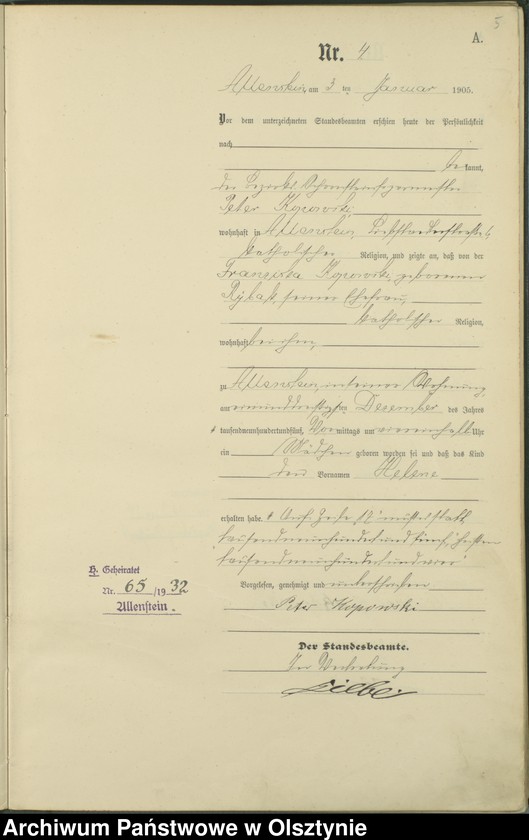 5
A.
Nr. 4
Allenstein, am 3 ten Januar 1905.
Vor dem unterzeichneten Standesbeamten erschien heute der Persönlichkeit
nach
bekannt,
der Bezirks-Schornsteinfegermeister
Peter Kopowski,
wohnhaft in Allenstein, Liebstädterstraße
katholischer Religion, und zeigte an, daß von der
Franziska Kopowski, geborenen
Rybak, seiner Ehefrau,
katholischer Religion,
wohnhaft bei ihm,
zu Allenstein, in seiner Wohnung,
am einunddreißigsten Dezember des Jahres
tausendneunhundertundfünf, Vormittags um Uhr
ein Mädchen geboren worden sei und daß das Kind
den Vornamen Helene
erhalten habe. Auf Zeile 12 muß es statt
tausendneunhundertundfünf heißen
tausendneunhundertundvier
Vorgelesen, genehmigt und unterschrieben
Peter Kopowski
Der Standesbeamte.
In Vertretung
H. Geheiratet
Nr. 65/1932
Allenstein.
Archiwum Państwowe w Olsztynie